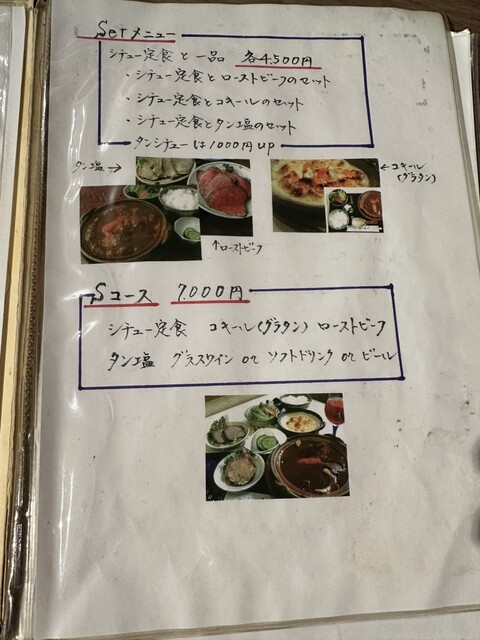 Setメニュー
シチュー定食と一品 各4,500円
・シチュー定食とローストビーフのセット
・シチュー定食とコキールのセット
・シチュー定食とタン塩のセット
タンシチューは1000円up
タン塩→
←コキール
(グラタン)
↑ローストビーフ
Sコース 7.000円
シチュー定食 コキール(グラタン) ローストビーフ
タン塩 グラスワイン or ソフトドリンク or ビール